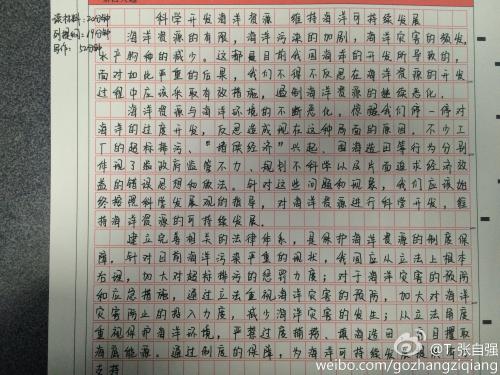 读材料:20分钟
列提纲:19分钟
写作:52分钟
科学开发海洋资源 维持海洋可持续发展
海洋资源的有限,海洋污染的加剧,海洋灾害的频发,
水产物种的减少。这都是目前我国海洋的开发所导致的,
面对如此严重的后果,我们不得不反思在海洋资源的开发
过程中应该采取有效措施,遏制海洋资源的继续恶化。
海洋资源与海洋环境的不断恶化,惊醒我们停一停对
海洋的过度开发,反思造成现在这种局面的原因。不少工
厂的超标排污、"捕候经济"兴起、围海造田等行为分别
体现了当政府监管不力、规划不科学以及片面追求经济效
益的错误思想和做法。针对这些问题和现象,我们应该始
终按照科学发展观的指导,对海洋资源进行科学开发,维
持海洋资源的可持续发展。
建立完善相关的法律体系,是保护海洋资源的制度保
障。针对目前海洋污染严重的现状,我国应从立法上根本
右视,加大对超标排污的惩罚力度;对于海洋灾害的预防
和应急措施,通过立法重视海洋灾害的预防,加大对海洋
灾害防止的投入力度,减少海洋灾害的发生;从立法角度
重视保护海洋环境,严禁过度捕捞、填海造田、盲目攫取
海底能源。通过制度的保障,为海洋可持续发展
支持
@T-张自强
weibo.com/gozhangziqiang